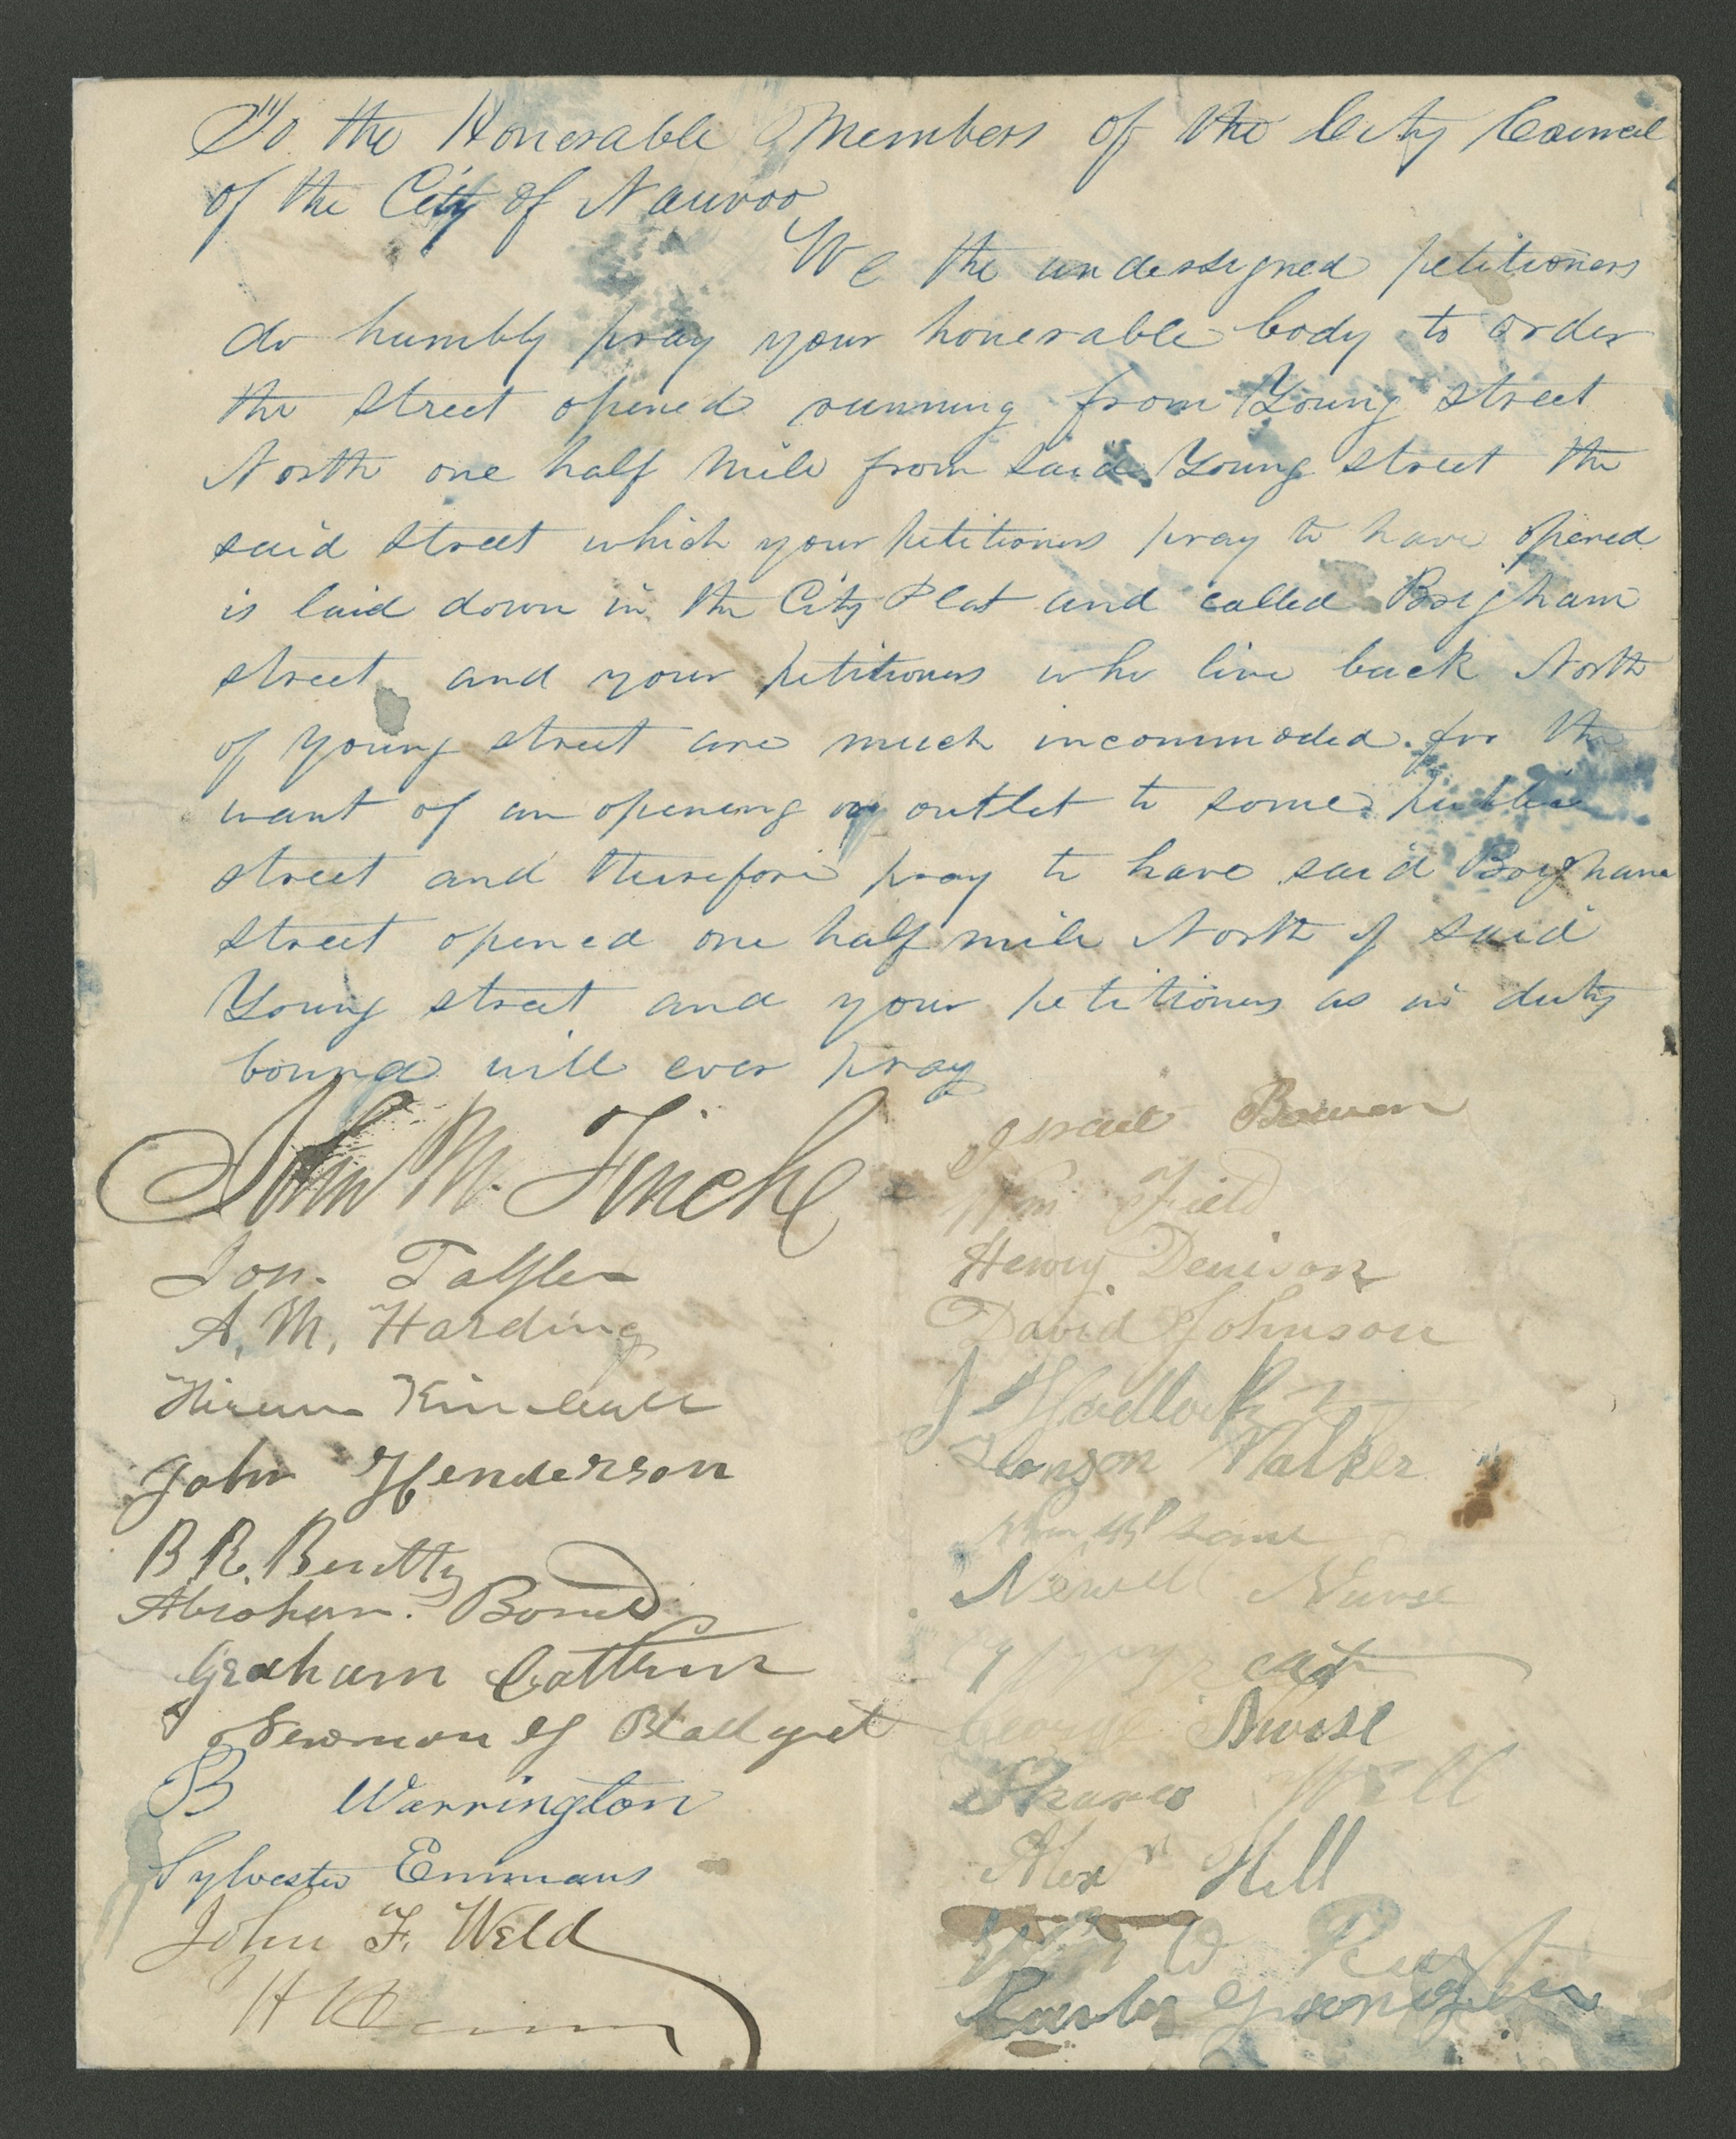 To the Honerable Members of the City Council
of the City of Nauvoo
We the undersigned petitioners
do humbly pray your honerable body to order
the street opened running from Young street
North one half mile from said Young street the
said street which your petitioners pray to have opened
is laid down in the City Plat and called Brigham
street and your petitioners who live back North
of Young street are much incommoded for the
want of an opening or outlet to some public
street and therefore pray to have said Brigham
street opened one half mile North of said
Young street and your petitioners as in duty
bound will ever pray
John M. Finch
Jon.
A. M. Harding
Hiram Kimball
John Henderson
B R.
Abraham
Graham
Newman
B Warrington
Sylvester Emmans
John F. Weld
H
Israel Bowen
Wm Field
Henry Denison
David Johnson
J Hadlock
Walker
Newell Nurse
Nurse
Alexr Hill
W